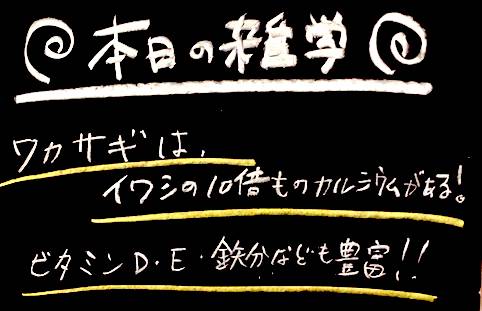 本日の雑学
ワカサギは、
イワシの10倍ものカルシウムがある!
ビタミンD・E・鉄分なども豊富!!